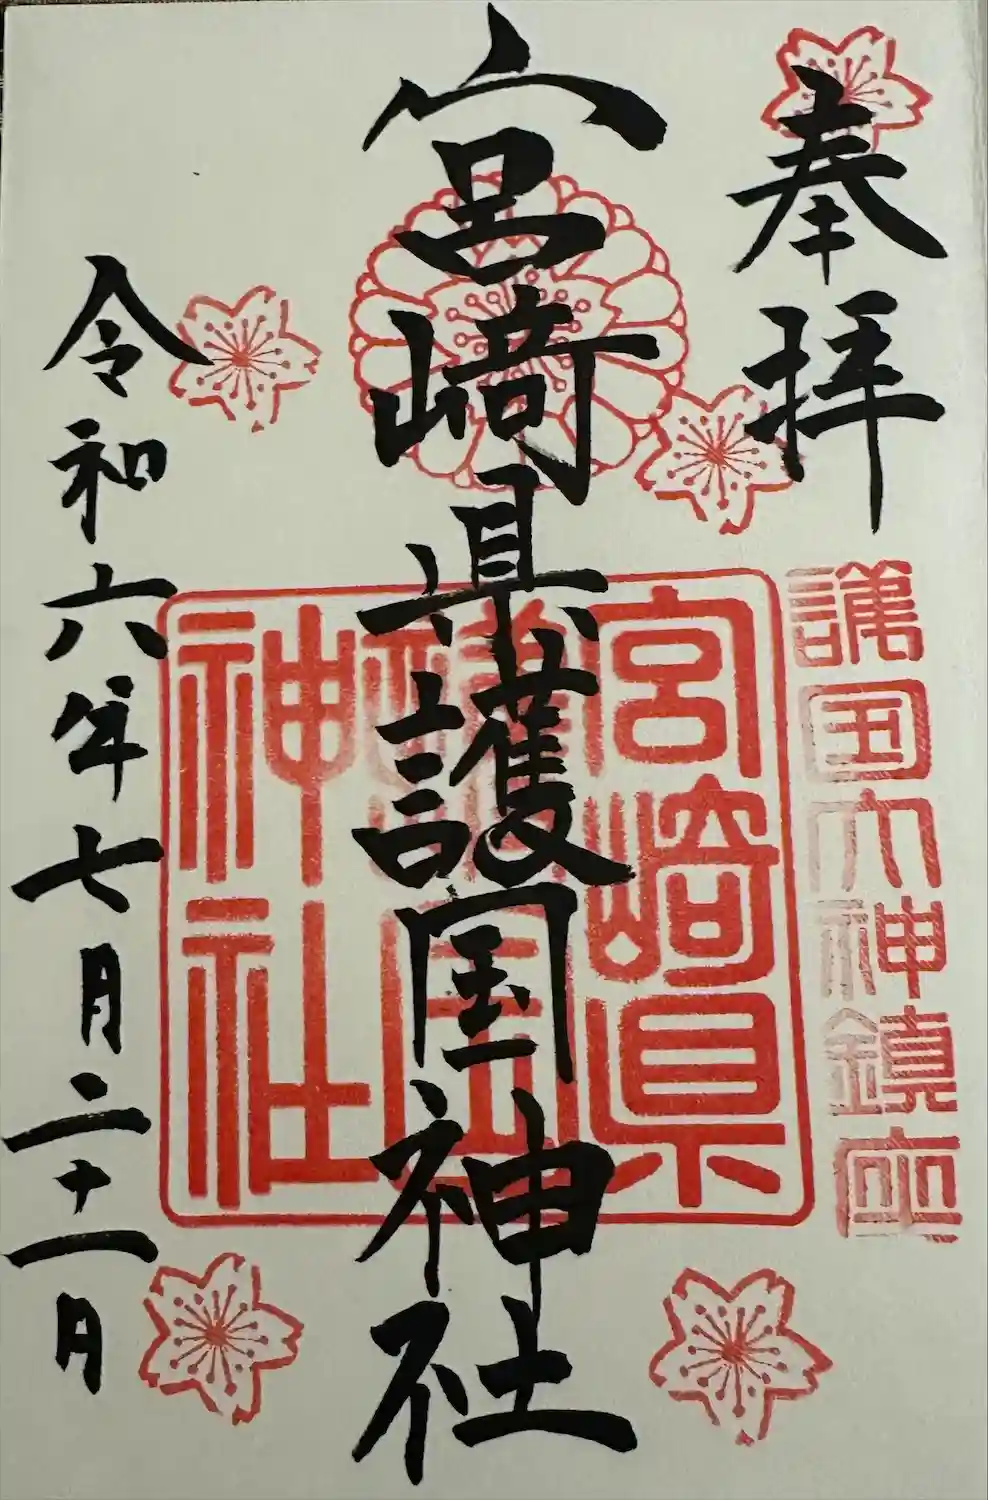 奉拝
護国大神鎮座
宮崎県護国神社
宮崎県
護国
神社
令和六年七月二十一日